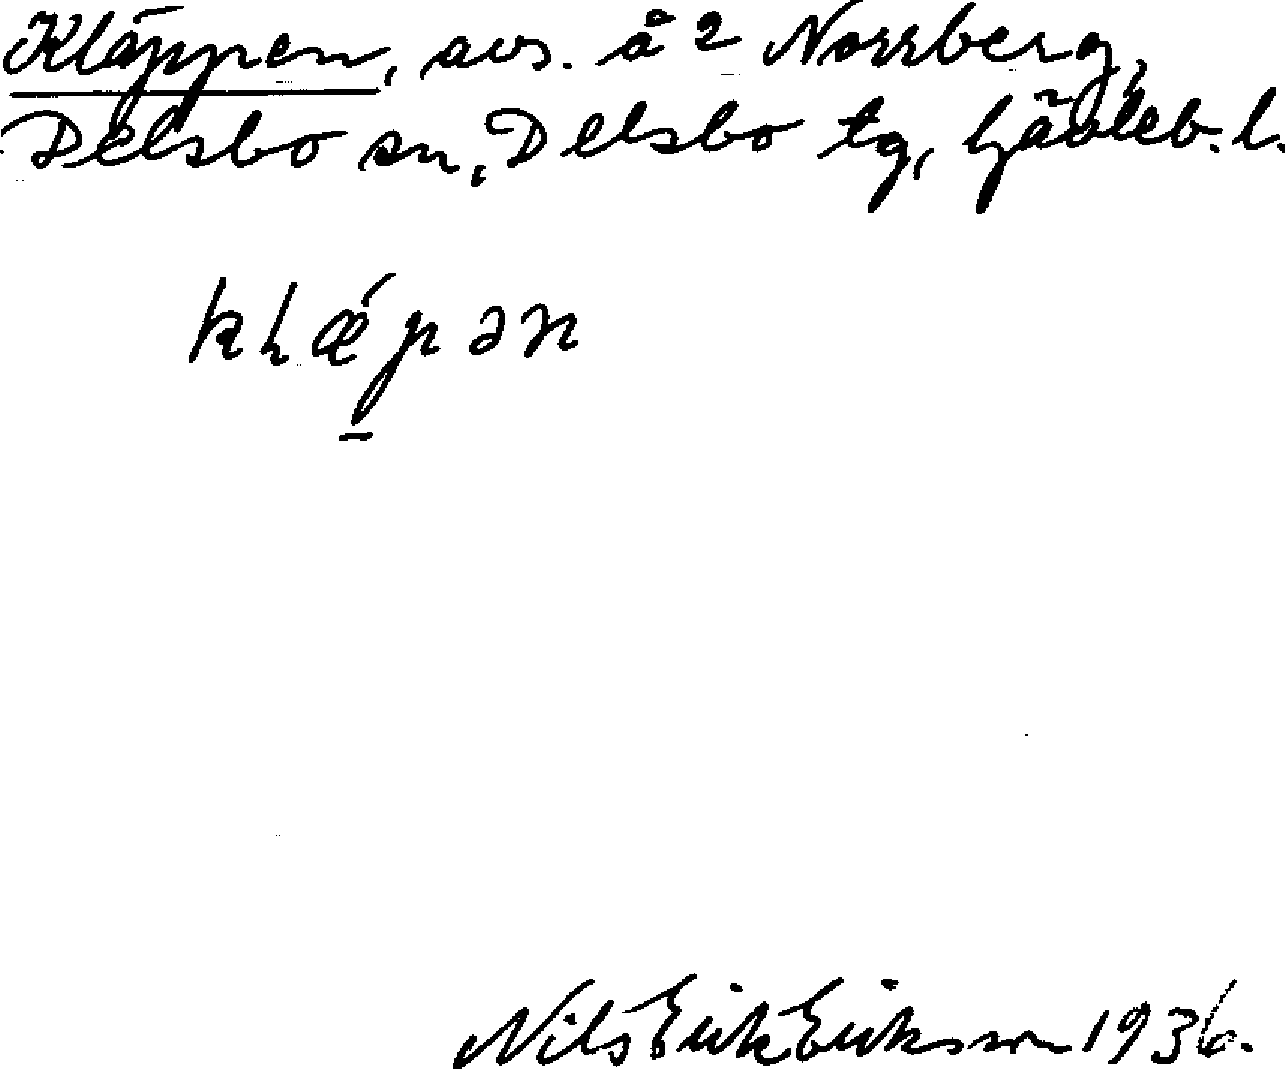 Kläppen, avs. å 2 Norrberg,
Delsbo sn, Delsbo tg, Gävleb. l.
klǽpən
Nils Erik Eriksson 1936.